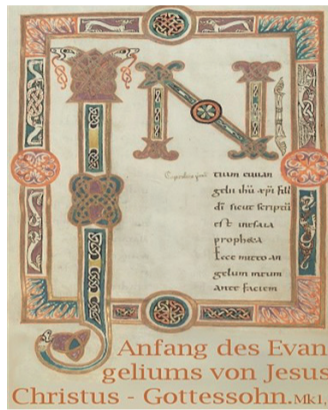 IN
tium euan
gelii ihu xpi fili
di sicut scriptu
est inesaia
propheta
Ecce mitto an
gelum meum
ante faciem
Anfang des Evan
geliums von Jesus
Christus - Gottessohn. Mk1,